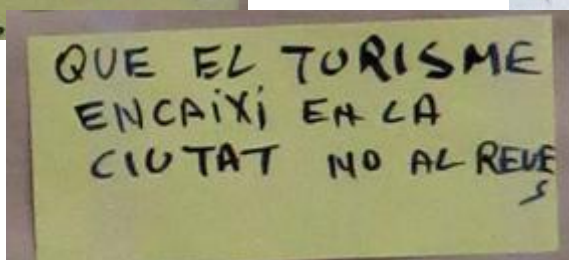 QUE EL TURISME
ENCAiXi EN LA
CIUTAT NO AL REVE
S